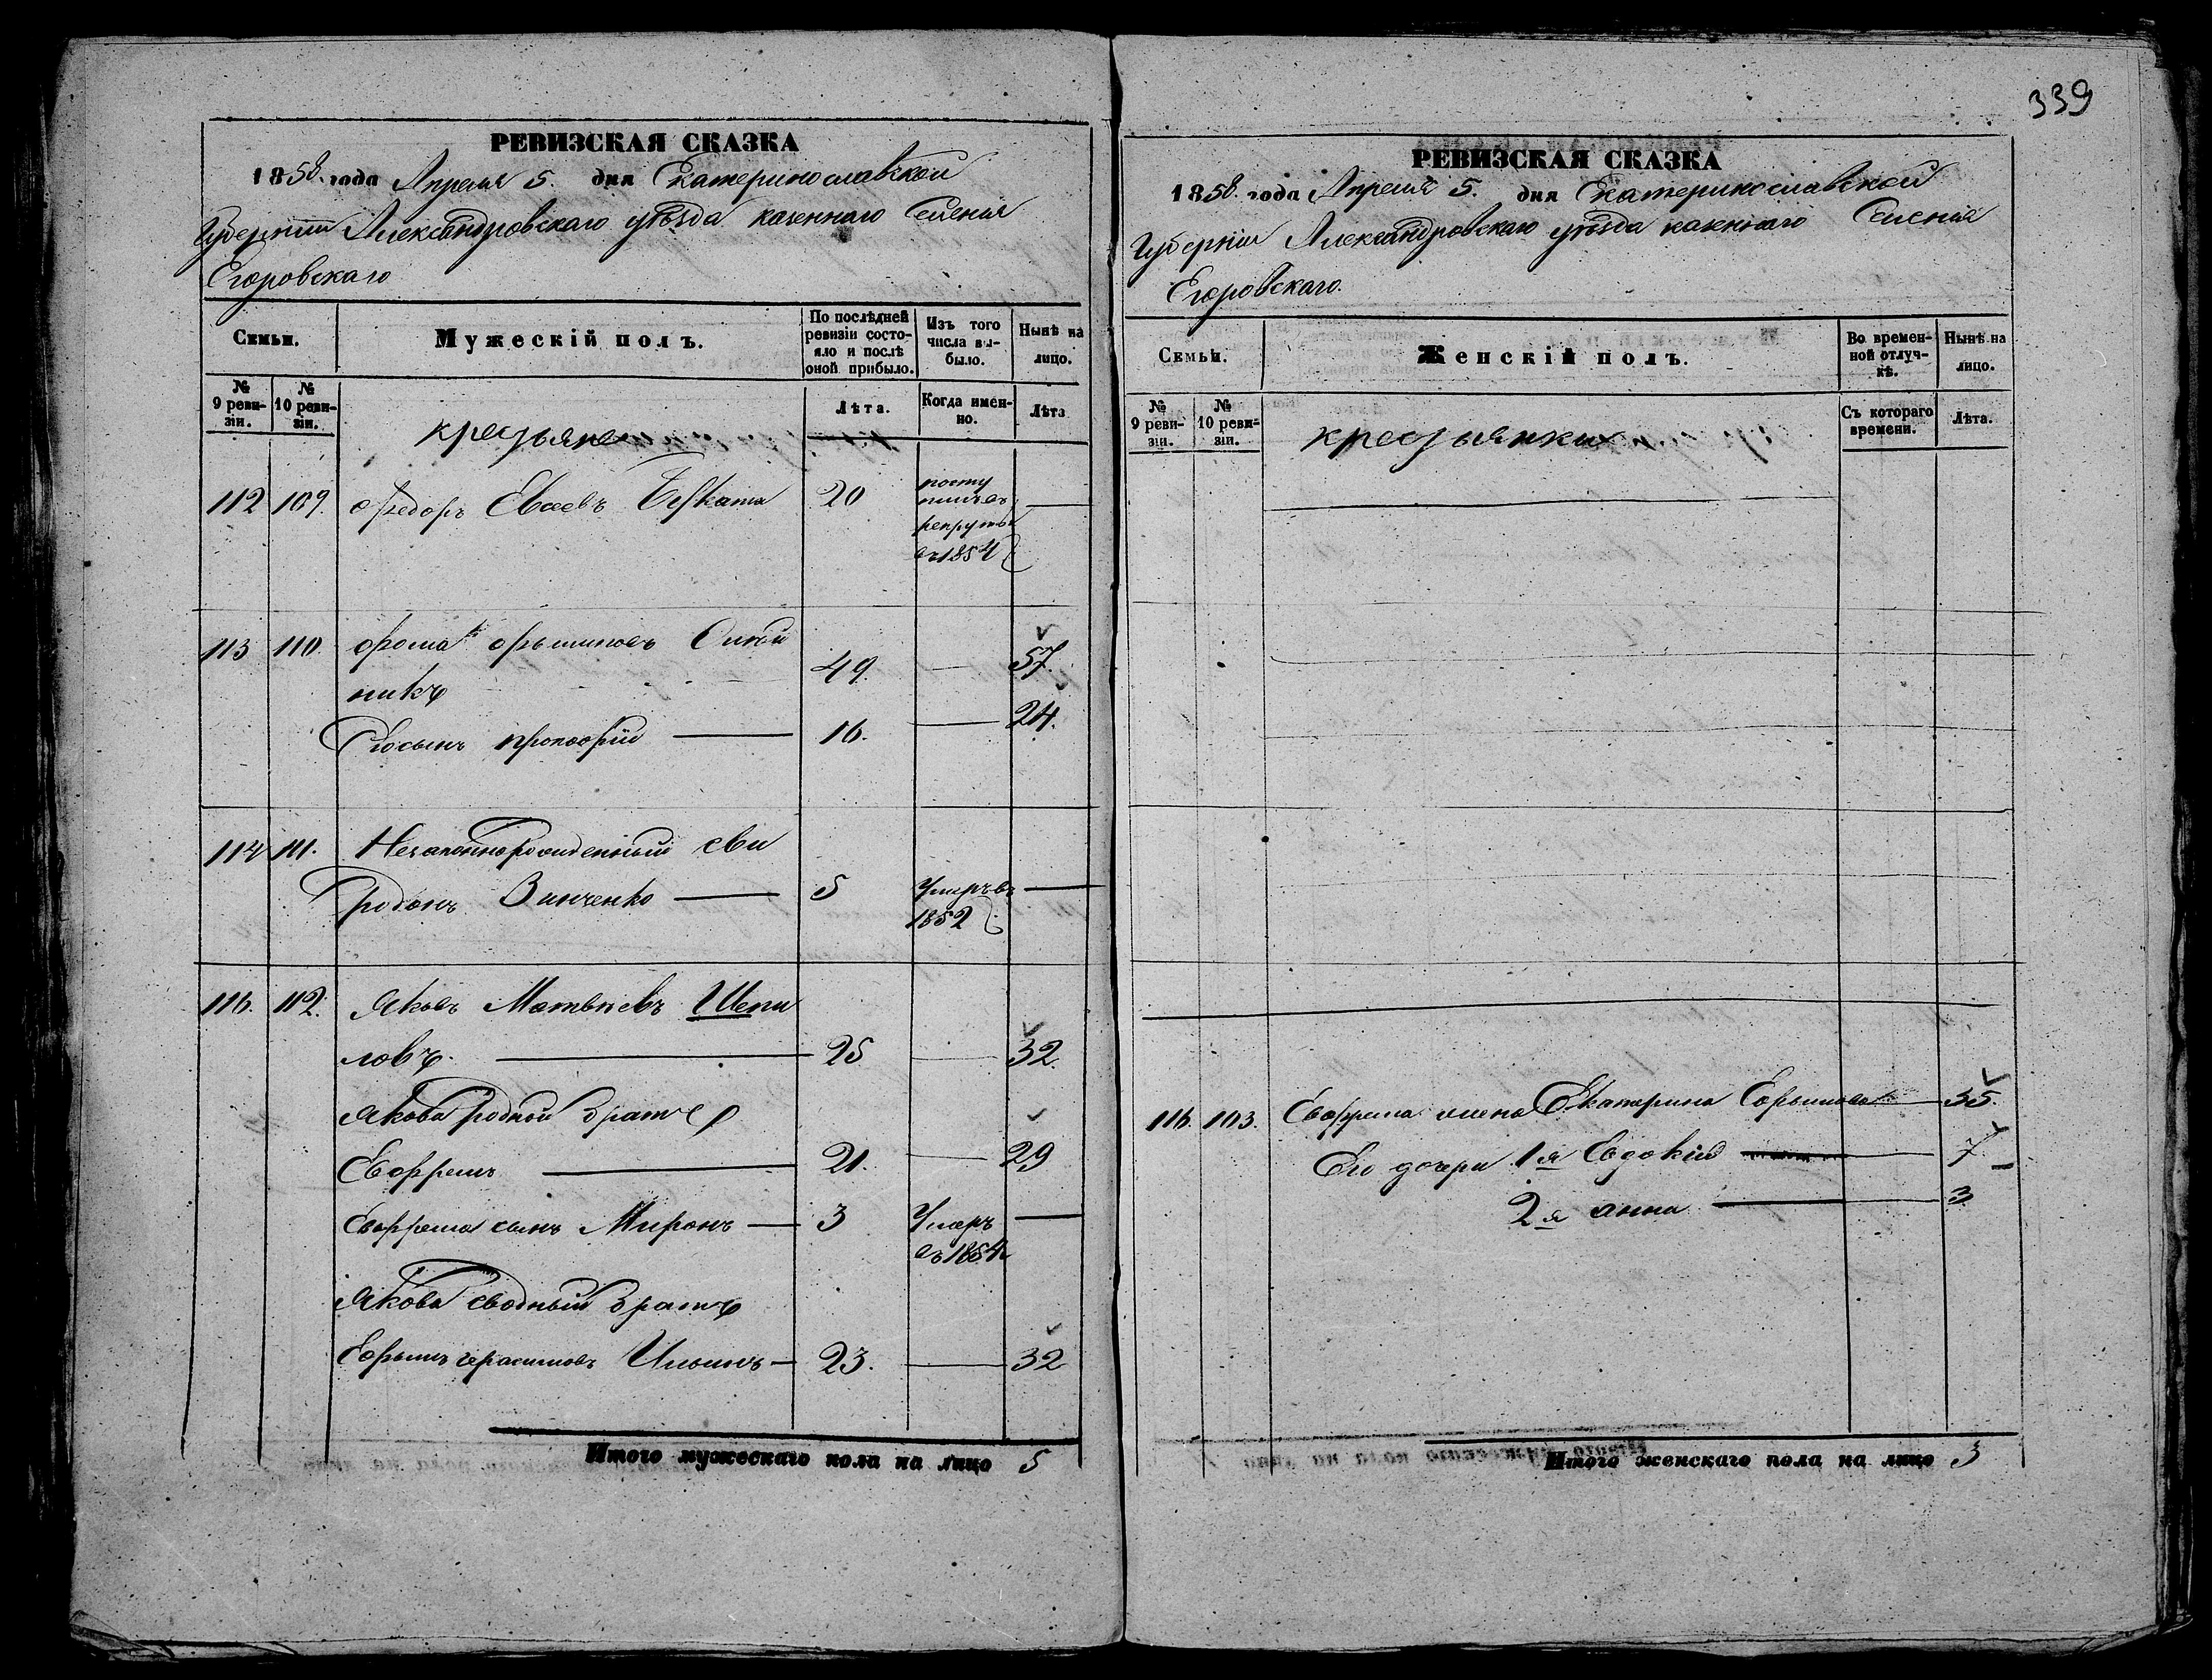 339
РЕВИЗСКАЯ СКАЗКА
1858 года Апреля 5. дня Екатеринославской
Губернии Александровскаго уѣзда казеннаго Селенія
Егоровскаго
Семьи.
Мужескій полъ.
По послѣдней ревизіи состояло и послѣ оной прибыло.
Изъ того числа выбыло.
Нынѣ на лицо.
№ 9 ревизіи.
№ 10 ревизіи.
Лѣта.
Когда именно.
Лѣта
крестьяне
112 109. Федоръ Евсеевъ 20
въ 1854
113 110. Фома
никъ 49. 57.
Его сынъ Прокофій 16. 24.
114 111. Незаконнорожденный
Родіонъ Зинченко 5 Умеръ въ
1852
116. 112. Яковъ Матвѣевъ Шепи
ловъ. 25 32.
Якова родной братъ
Ефремъ 21. 29
Ефрема сынъ Миронъ 3 Умеръ
въ 1854
Якова сводный братъ
Ефимъ Герасимовъ Ильинъ 23. 32
Итого мужескаго пола на лицо 5
РЕВИЗСКАЯ СКАЗКА
1858. года Апреля 5. дня Екатеринославской
Губерніи Александровскаго уѣзда казеннаго Селенія
Егоровскаго.
Семьи.
Женскій полъ.
Во временной отлучкѣ.
Нынѣ на лицо.
№ 9 ревизіи.
№ 10 ревизіи.
Съ котораго времени.
Лѣта.
крестьянки
116. 103. Ефрема жена Екатерина Ефимова 35.
Его дочери 1я Евдокія 7
2я анна 3
Итого женскаго пола на лицо 3